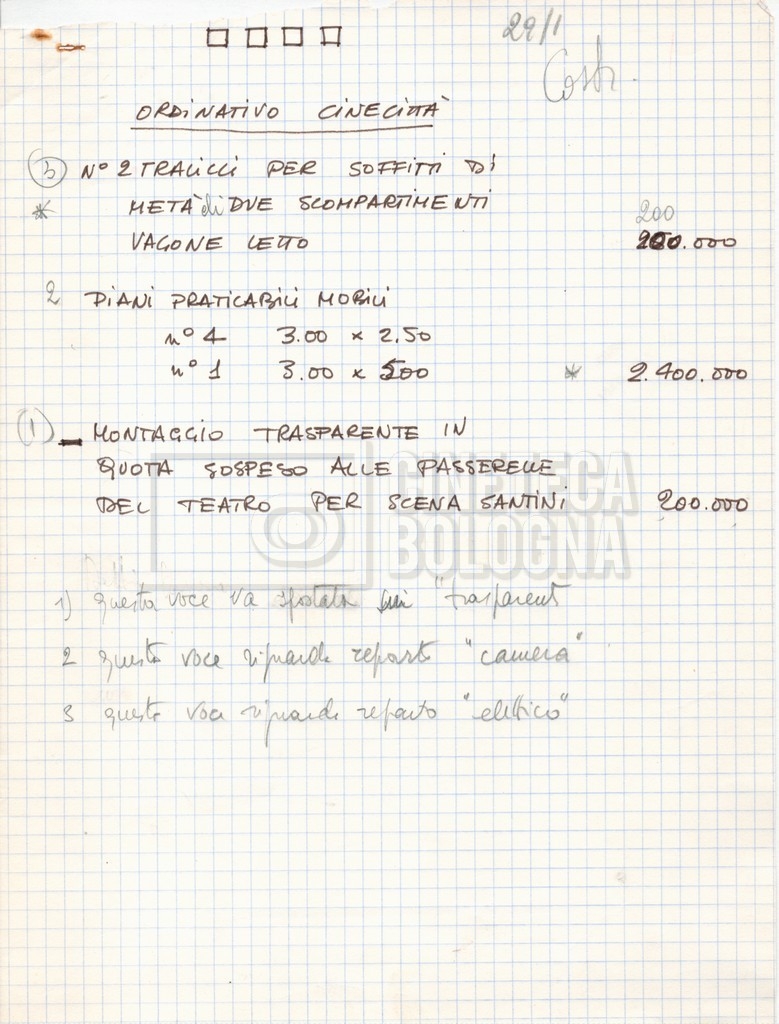 29/1
ORDINATIVO CINECITTÀ
3 N° 2 TRALICCI PER SOFFITTI DI
* METÀ di DUE SCOMPARTIMENTI
200
VAGONE LETTO 200.000
2 PIANI PRATICABILI MOBILI
n° 4 3.00 x 2.50
n° 1 3.00 x 500 * 2.400.000
1 - MONTAGGIO TRASPARENTE IN
QUOTA SOSPESO ALLE PASSERELLE
DEL TEATRO PER SCENA SANTINI 200.000
CINETECA
BOLOGNA
1) questa voce va spostata sui "trasparenti
2 questa voce riguarda reparto "camera"
3 questa voce riguarda reparto "elettrico"